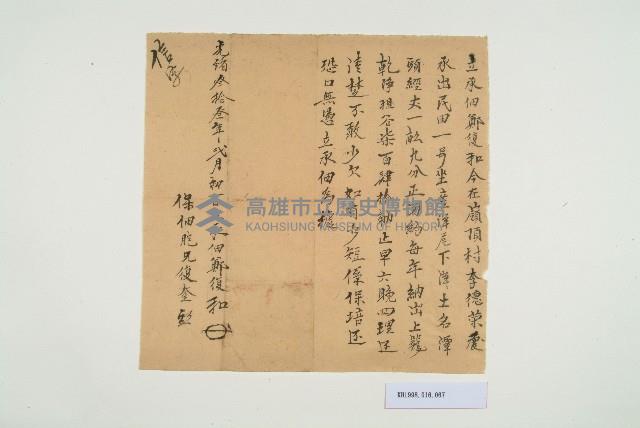 立承佃鄭復和今在嶺頂村李德榮處
承出民田一号坐产洋尾下洋土名潭
頭經丈一畝九分正面約每年納出上籠
乾淨租谷柒百肆拾觔正早六晚四理还
清楚不敢少欠如有少短係保培还
恐口無憑立承佃為據
光緒叁拾叁年弍月初日立承佃鄭復和
保佃胞兄復奎
高雄市立歷史博物館
KAOHSIUNG MUSEUM OF HISTORY
KH1998.516.067